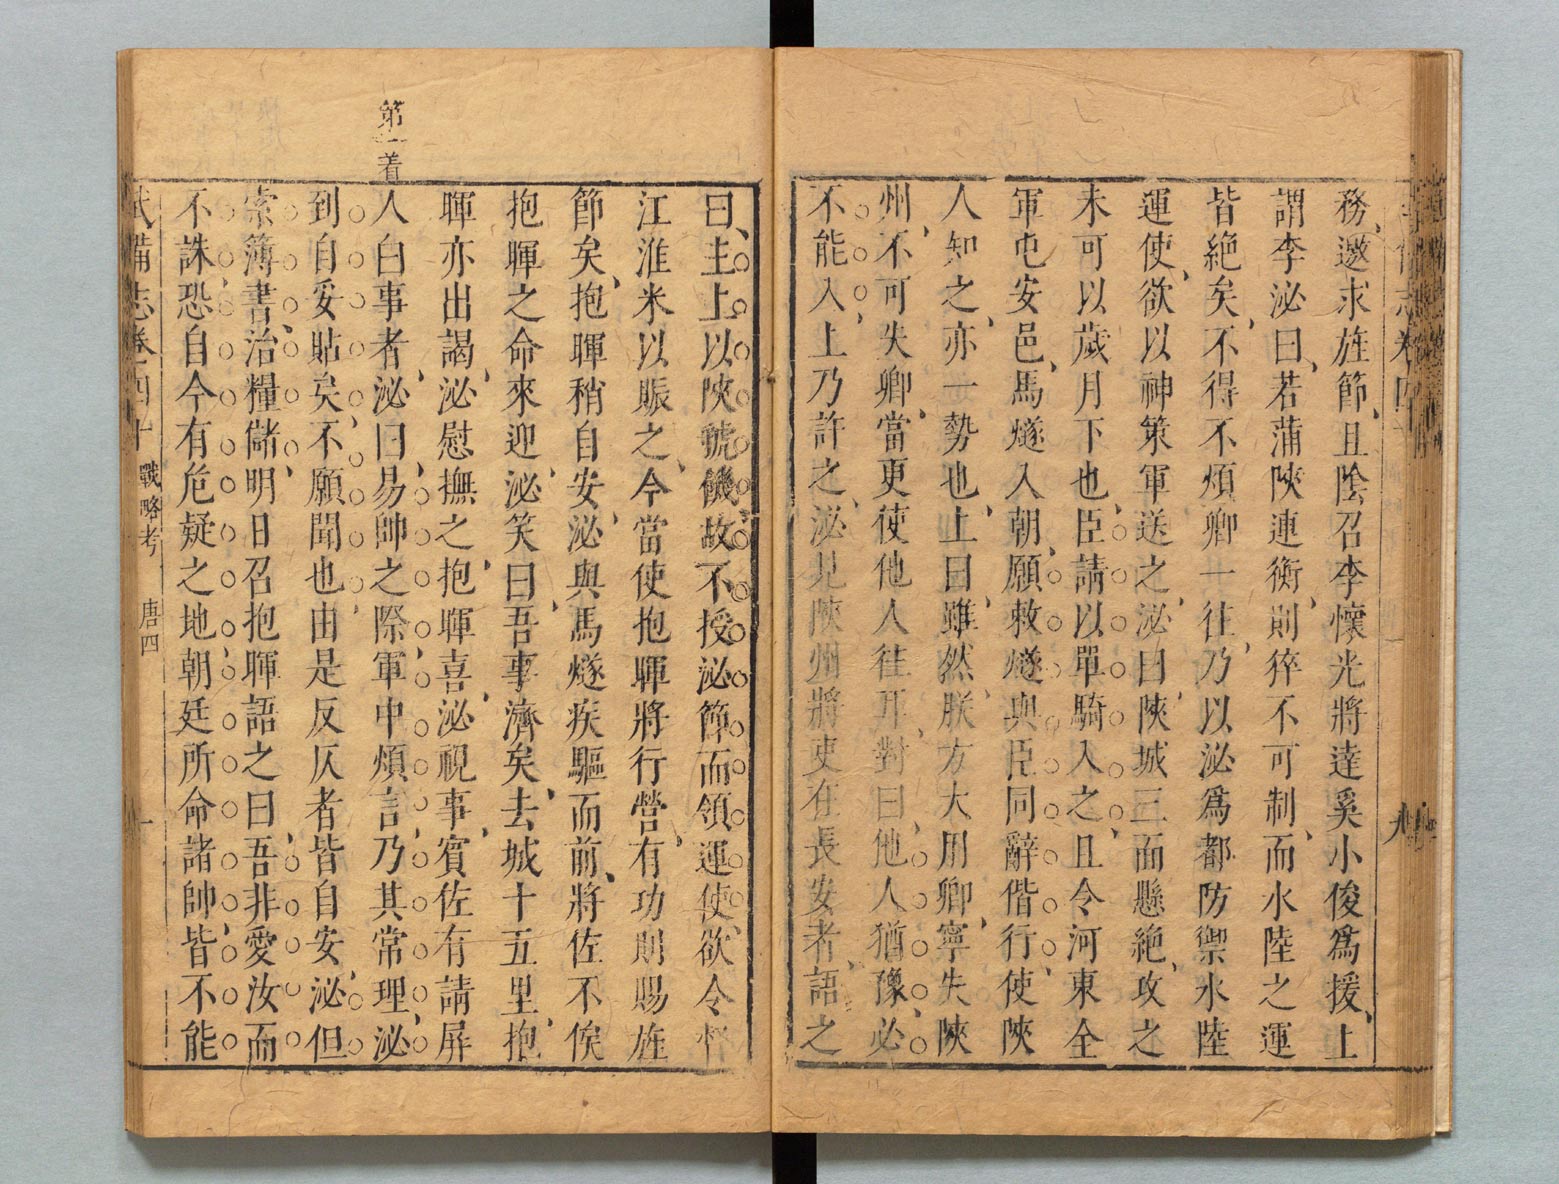 務邀求旌節且陰召李懷光將達奚小俊爲援上
謂李泌曰若蒲陝連衡則猝不可制而水陸之運
皆絶矣不得不煩卿一往乃以泌爲都防禦水陸
運使欲以神策軍送之泌曰陝城三面懸絶攻之
未可以歲月下也臣請以單騎入之且令河東全
軍屯安邑馬燧入朝願敕燧與臣同辭偕行使陝
人知之亦一勢也上曰雖然朕方大用卿寧失陝
州不可失卿當更使他人往耳對曰他人猶豫必
不能入上乃許之泌見陝州將吏在長安者語之
曰主上以陝虢饑故不授泌節而領運使欲令督
江淮米以賑之今當使抱暉將行營有功則賜旌
節矣抱暉稍自安泌與馬燧疾驅而前將佐不俟
抱暉之命來迎泌笑曰吾事濟矣去城十五里抱
暉亦出謁泌慰撫之抱暉喜泌視事賓佐有請屏
第一着
人白事者泌曰易帥之際軍中煩言乃其常理泌
到自妥貼矣不願聞也由是反仄者皆自安泌但
索簿書治糧儲明日召抱暉語之曰吾非愛汝而
不誅恐自今有危疑之地朝廷所命諸帥皆不能
武備志卷四十 戰略考 唐四